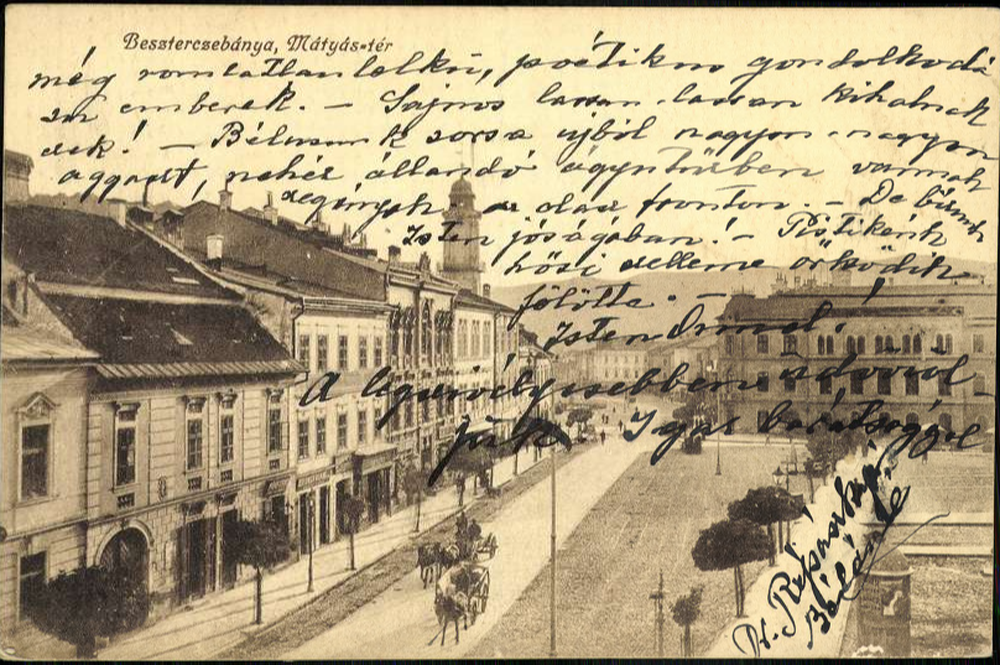 Beszterczebánya, Mátyás-tér
még romlatlanlelkű, poétikus gondolkodá
sú emberek. – Sajnos lassan-lassan kihalnak
ezek! – Bélusunk sorsa újból nagyon-nagyon
aggaszt, nehéz állandó ágyutűzben vannak
szegények az olasz fronton. – De bízunk
Isten jóságában! – Pistikénk
hősi szelleme őrködik
fölötte. –
Istenünnel!
A legszívélyesebben üdvözöl
jük Igaz barátsággal
Dr. Répászky
Béláné